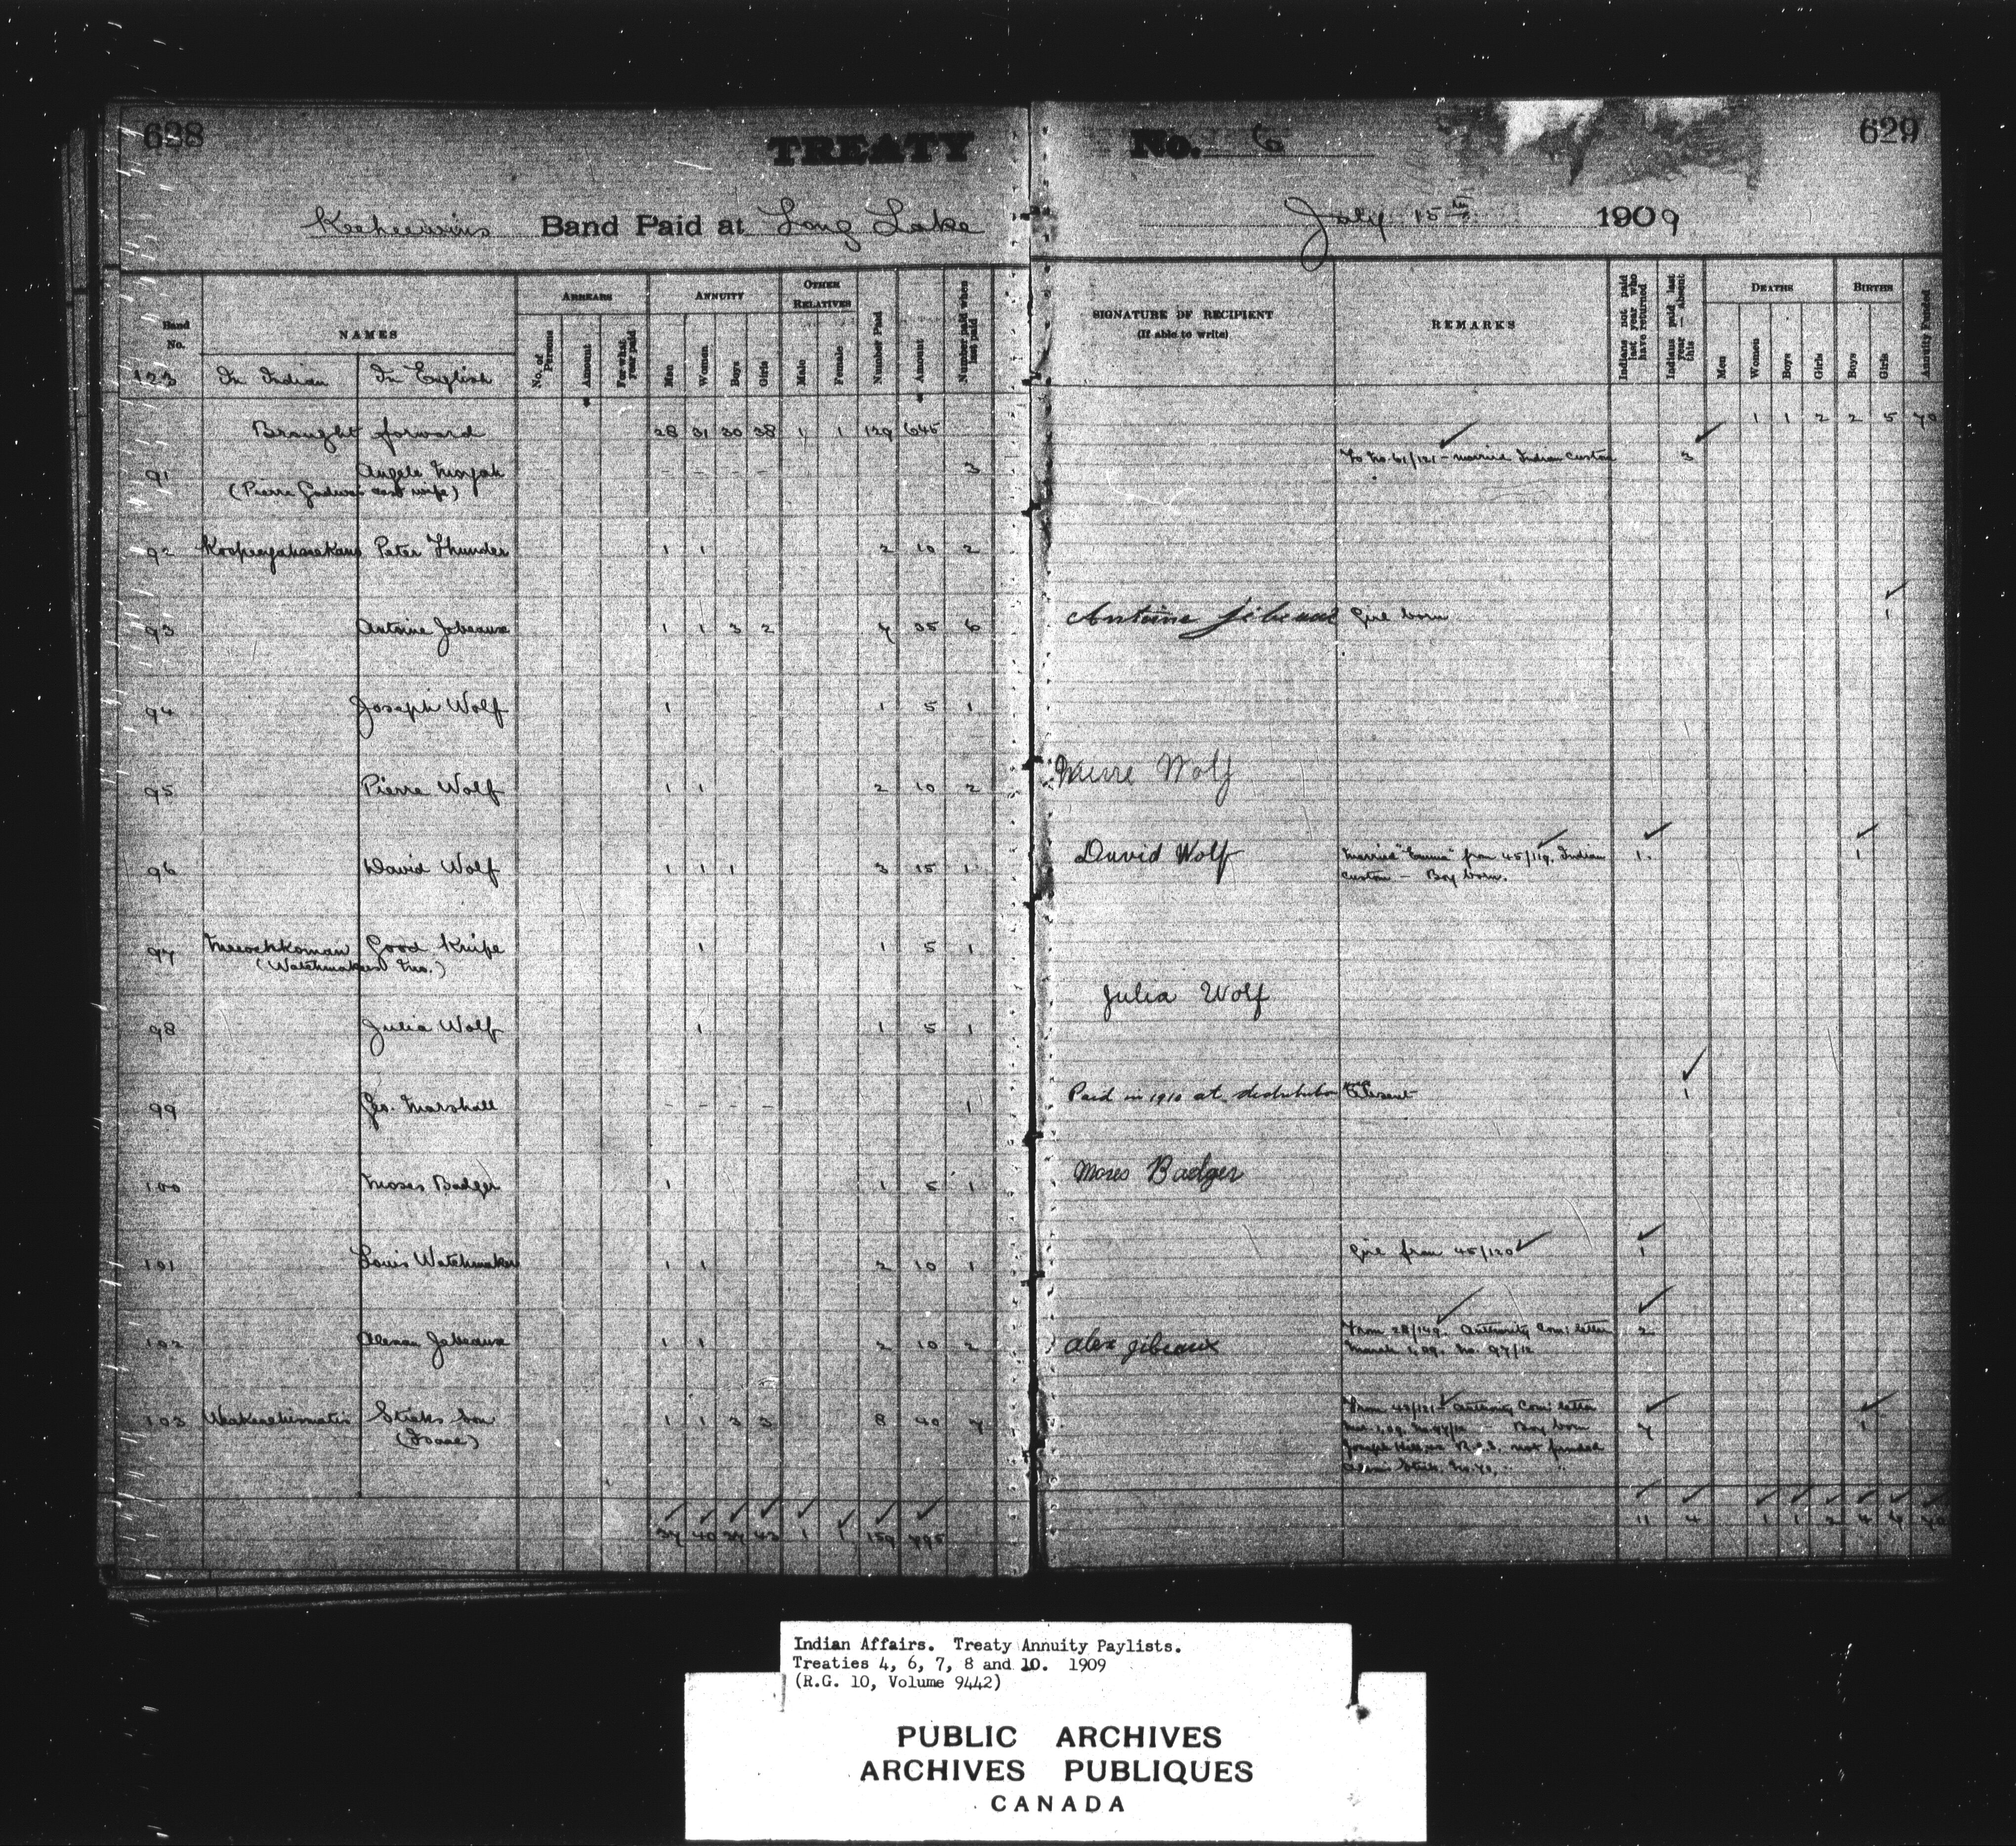 628
TREATY
No. 6
629
Keeheewins Band Paid at Long Lake
July 15th 1909
Band No.
NAMES
ARREARS
ANNUITY
OTHER RELATIVES
No. of Persons
Amount
For what year paid
Men
Women
Boys
Girls
Male
Female
Number Paid
Amount
Number paid when last paid
SIGNATURE OF RECIPIENT
(If able to write)
REMARKS
Indians not paid last year who have returned
Indians paid last year — absent this
DEATHS
BIRTHS
Men
Women
Boys
Girls
Boys
Girls
Annuity Funded
123 In Indian In English
Brought forward 28 31 30 38 1 1 129 645
1 1 2 2 5 70
91 Angele
(Pierre wife) - - - - 3
To No. 61/121 - married Indian custom 3
92 Peter Thunder 1 1 2 10 2
93 Antoine Jebeaux 1 1 3 2 7 35 6
Antoine Jibeaux Girl born 1
94 Joseph Wolf 1 1 5 1
95 Pierre Wolf 1 1 2 10 2
Pierre Wolf
96 David Wolf 1 1 1 3 15 1
David Wolf Married "Emma" from 45/119, Indian 1. 1
custom - Boy born.
97 Good Knife 1 1 5 1
(Watchmakers Mo.)
98 Julia Wolf 1 1 5 1
Julia Wolf
99 Geo. Marshall - - - 1
Paid in 1910 at distribution Absent 1
100 Moses Badger 1 1 5 1
Moses Badger
101 Louis Watchmaker 1 1 2 10 1
Girl from 45/120 1
102 Jebeaux 1 1 2 10 2
Alex Jibeaux From 28/149. Authority Com: letter 2
March 1, 09. No. 97/12
103 Sticks Son 1 1 3 3 8 40 7
(Isaac)
From 43/121 - Authority Com: letter
Boy born 7 1
Joseph not funded
37 40 34 43 1 1 159 795
11 4 1 1 2 4 6 70
Indian Affairs. Treaty Annuity Paylists.
Treaties 4, 6, 7, 8 and 10. 1909
(R.G. 10, Volume 9442)
PUBLIC ARCHIVES
ARCHIVES PUBLIQUES
CANADA